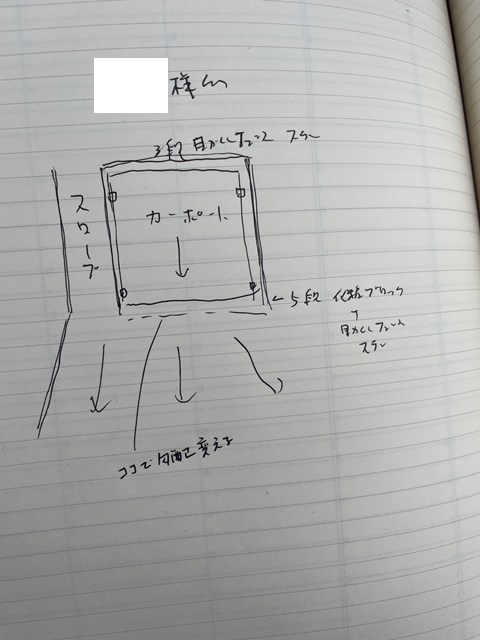 様邸
3段 目かくしフェンス
スロープ
カーポート
←5段 化粧ブロック
目かくしフェンス
ココで勾配変える